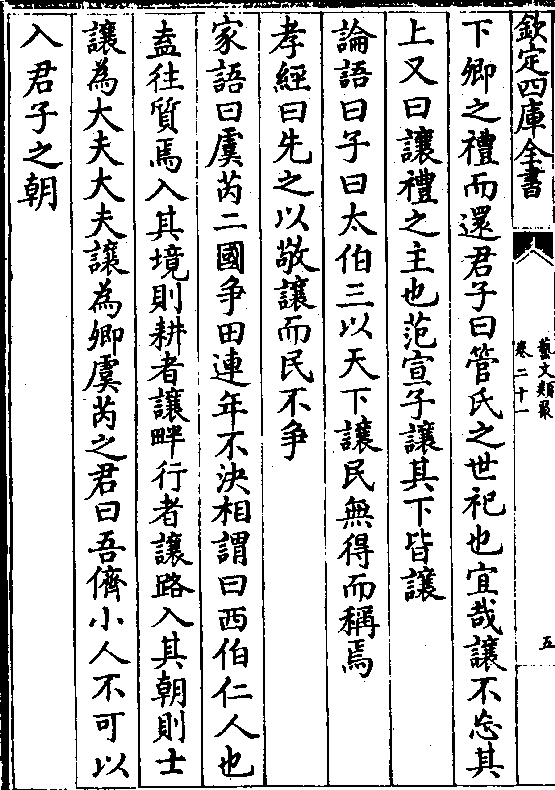 欽定四庫全書
藝文類聚
卷二十一
五
下卿之禮而還君子曰管氏之世祀也宜哉讓不忘其
上又曰讓禮之主也范宣子讓其下皆讓
論語曰子曰太伯三以天下讓民無得而稱焉
孝經曰先之以敬讓而民不争
家語曰虞芮二國争田連年不決相謂曰西伯仁人也
盍往質焉入其境則耕者讓畔行者讓路入其朝則士
讓為大夫大夫讓為卿虞芮之君曰吾儕小人不可以
入君子之朝